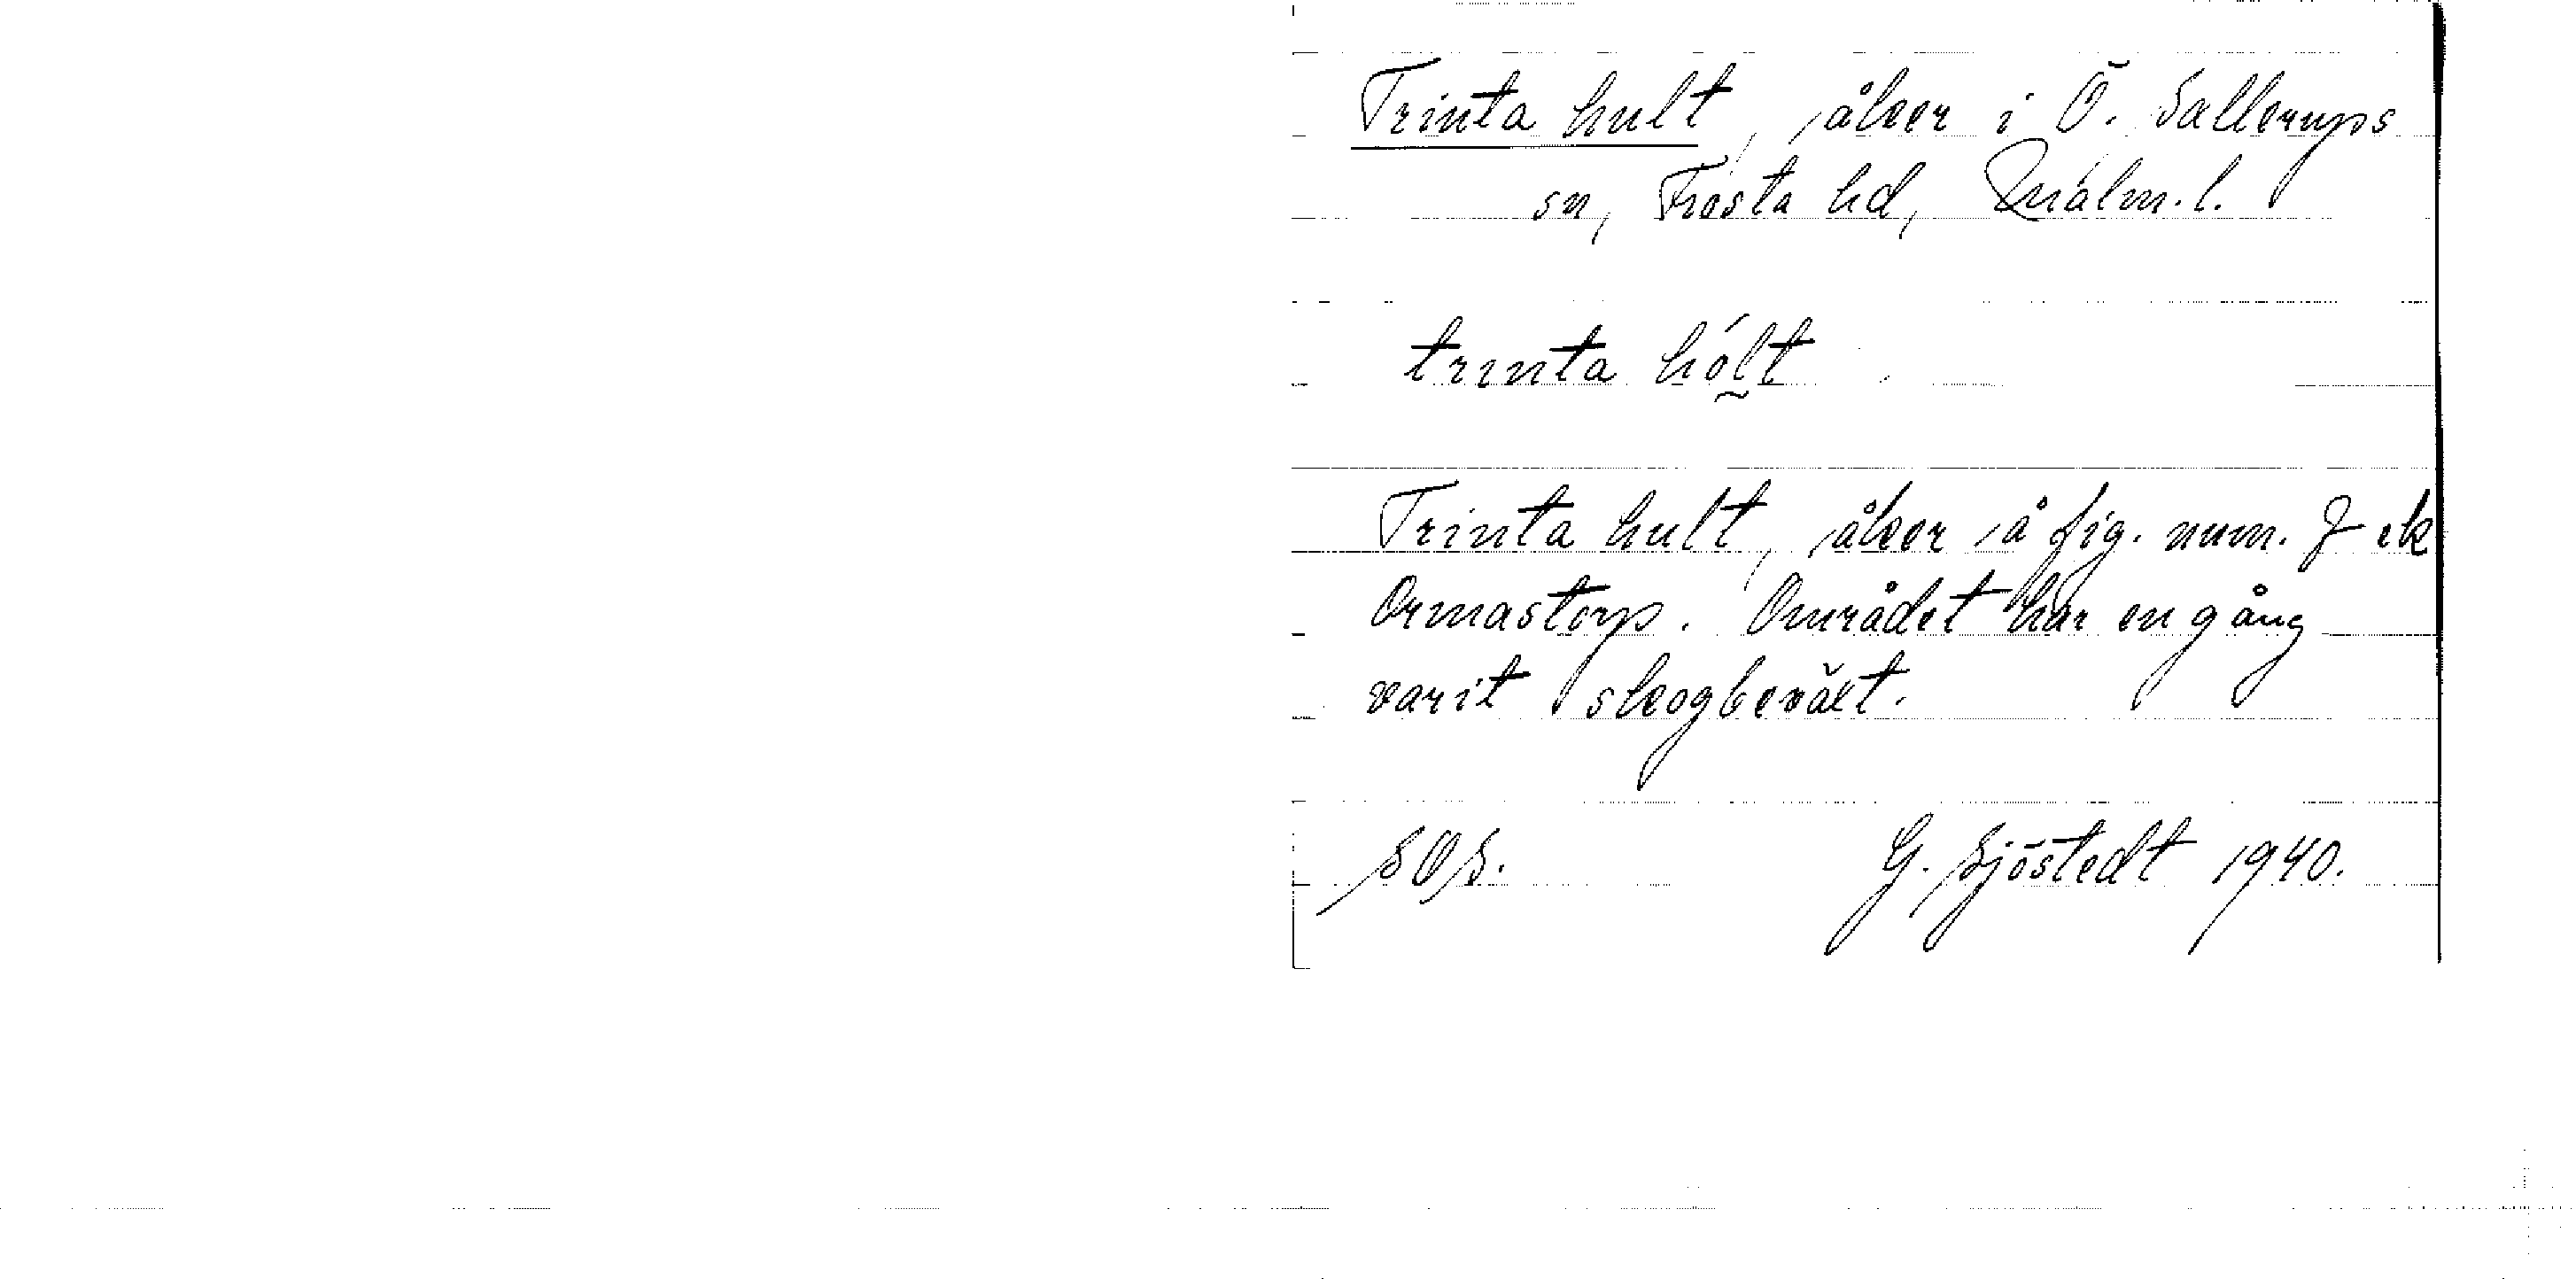 Trinta hult, åker i Ö. Sallerups
sn, Frosta hd, Malm. l.
trınta hól̰t
Trinta hult, åker å fig. num. J ek
Ormastorp. Området har en gång
varit skogbeväxt.
SOS. G. Sjöstedt 1940.